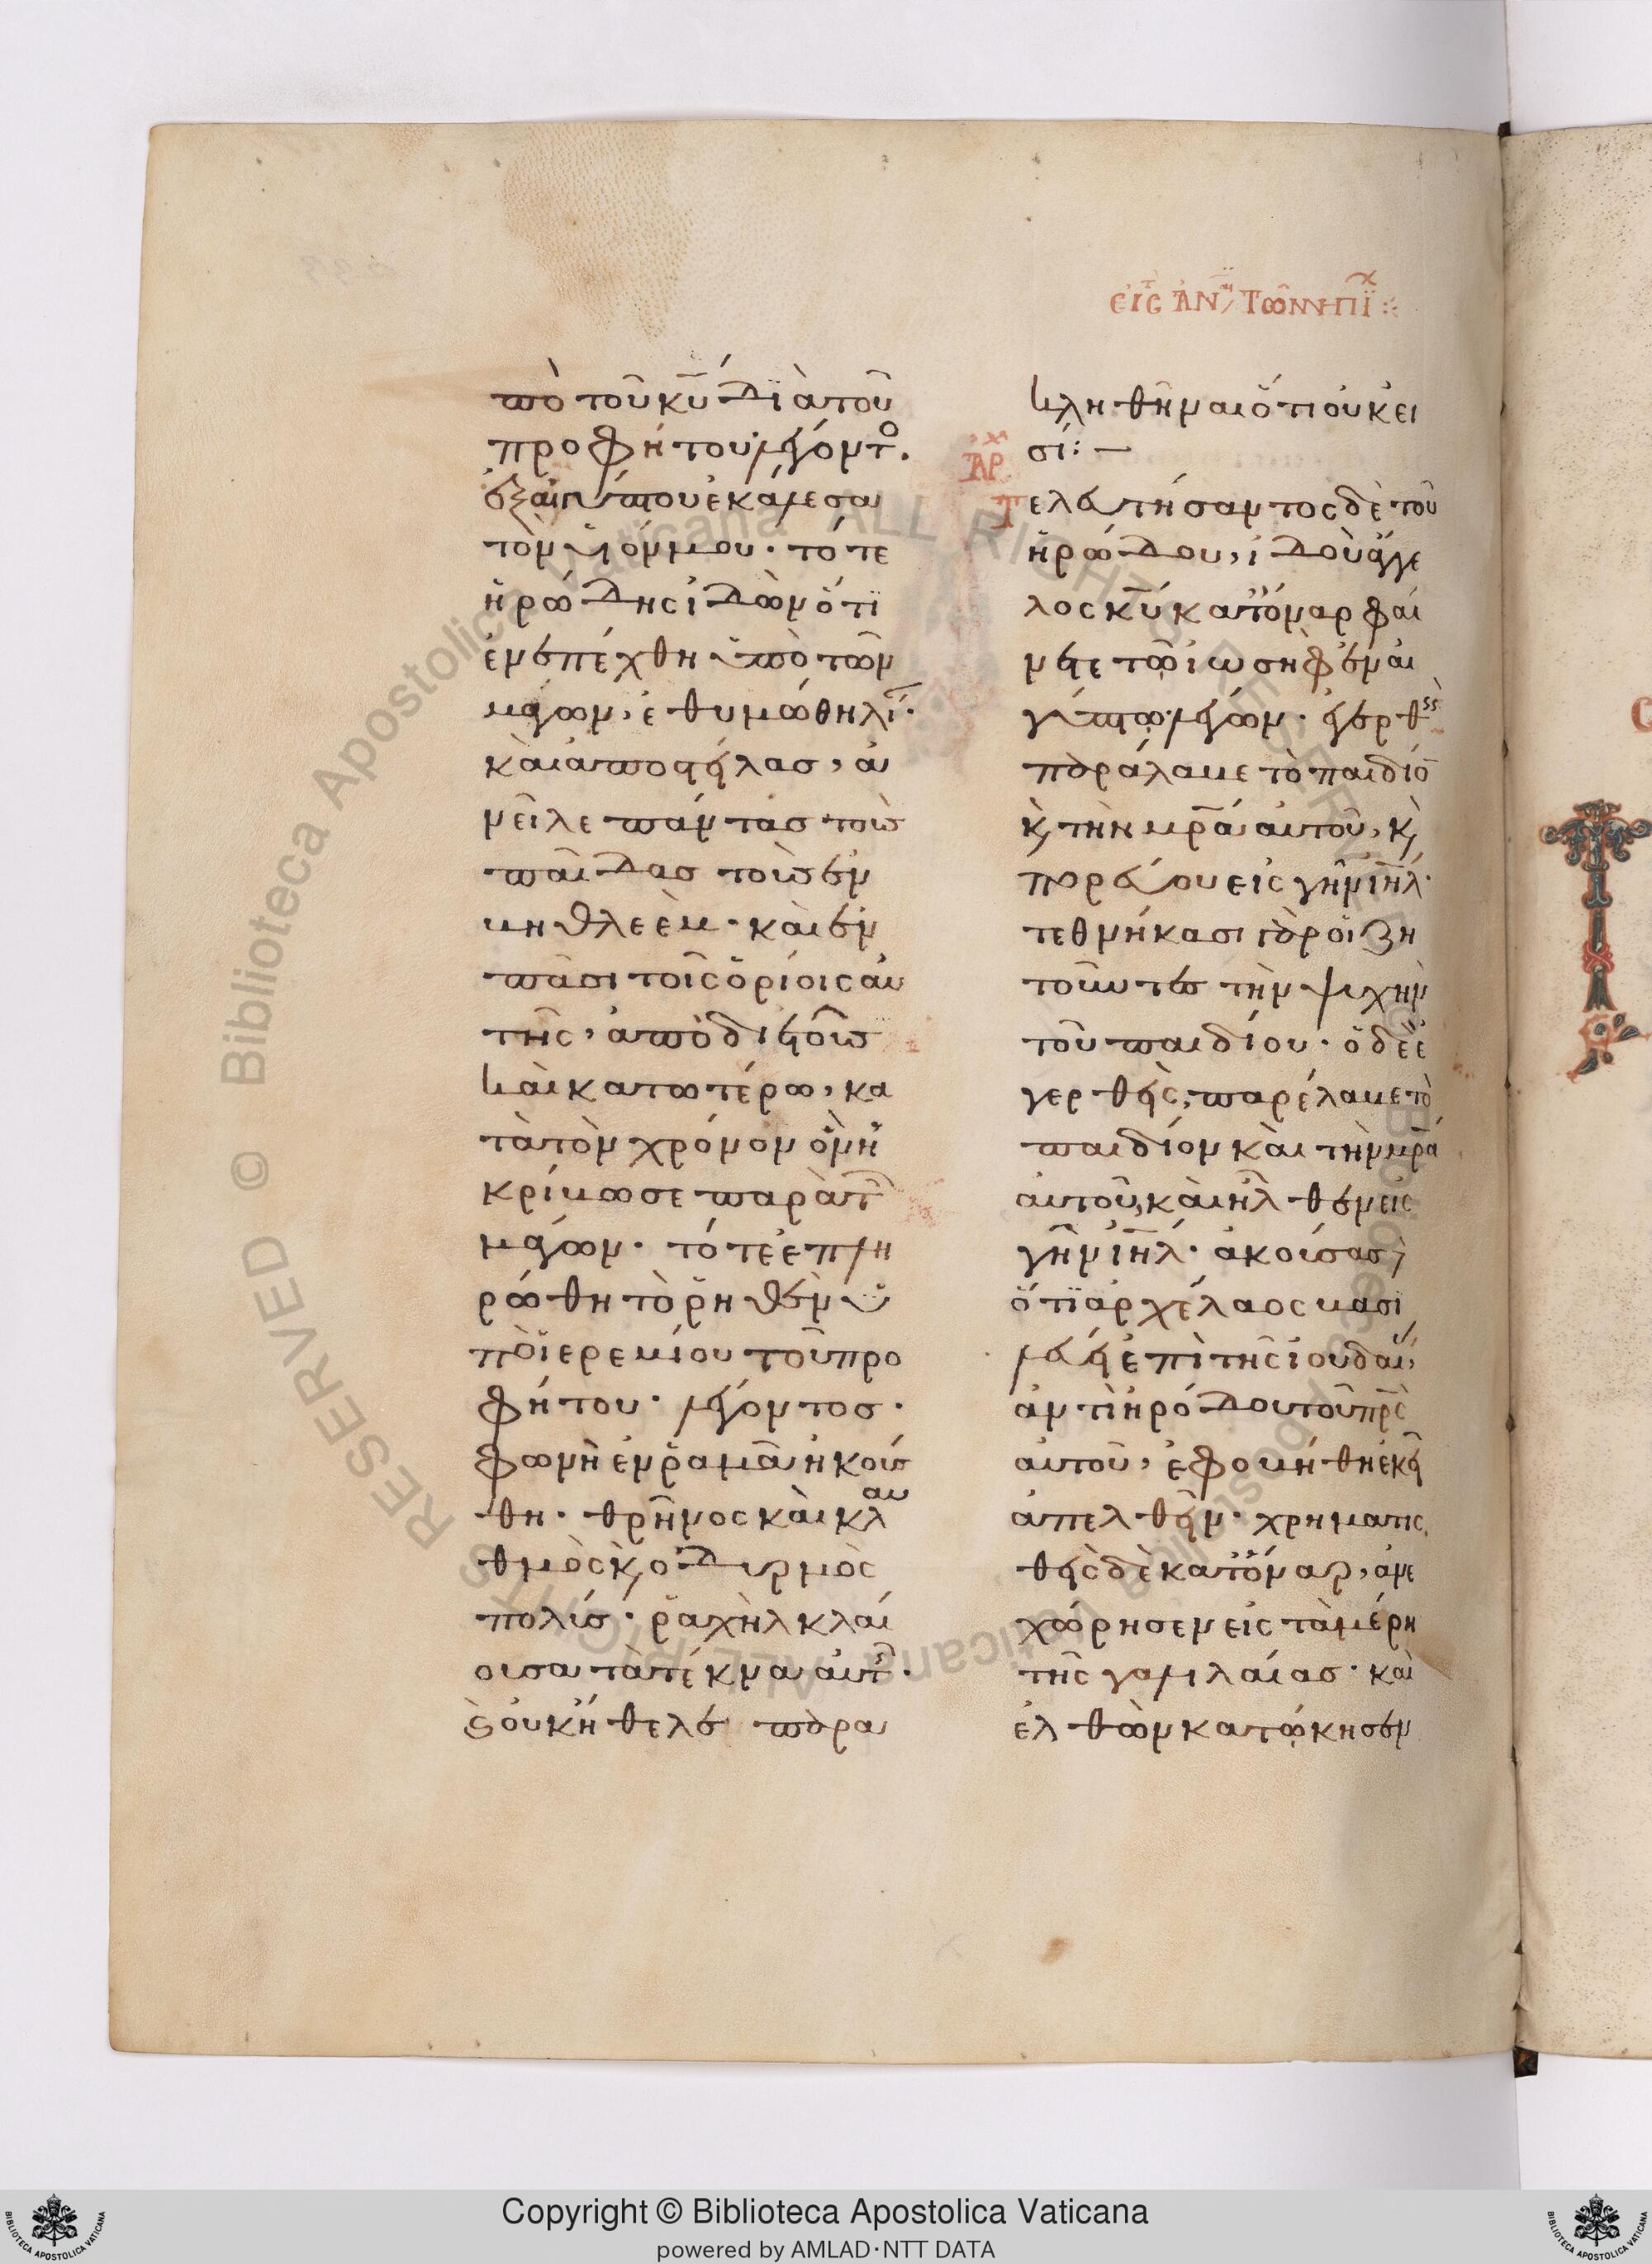 εἰς ἀν τῶν νηπί
πὸ τοῦ κῡ διὰ τοῦ
προφήτου λέγοντο.
ἐξ αἰγύπτου ἐκάλεσα
τὸν υἱόν μου. τότε
ἡρώδης ἰδὼν ὅτι
ἐνεπέχθη ὑπὸ τῶν
μάγων, ἐθυμώθη λί.
καὶ ἀποστείλας, ἀ
νεῖλε πάντας τοὺς
παῖδας τοὺς ἐν
βηθλεὲμ. καὶ ἐν
πᾶσι τοῖς ὁρίοις αὐ
τῆς, ἀπὸ διετοῦς
καὶ κατωτέρω, κα
τὰ τὸν χρόνον ὃν ἠ
κρίβωσε παρὰ τ
μάγων. τότε ἐπλη
ρώθη τὸ ῥηθὲν ὑ
πὸ ἱερεμίου τοῦ προ
φήτου. λέγοντος.
φωνὴ ἐν ῥαμᾶ ἠκούσ
θη. θρῆνος καὶ κλαυ
θμὸς κ ὀδυρμὸς
πολύς. ῥαχὴλ κλαί
ουσα τὰ τέκνα αὐτ.
ϗ οὐκ ἤθελε παρα
κληθῆναι ὅτι οὐκ εἰ
σί:—
ἀρχ
Τελευτήσαντος δὲ τοῦ
ἡρώδου, ἰδοὺ ἄγγε
λος κῡ κατ ὄναρ φαί
νεται τῷ ἰωσὴφ ἐν αἰ
γύπτῳ λέγων. ἐγερθεὶς
παράλαβε τὸ παιδίο
κ τὴν μρ̄α αὐτοῦ, κ
πορεύου εἰς γῆν ιη̄λ.
τεθνήκασι γὰρ οἱ ζη
τοῦντες τὴν ψυχὴν
τοῦ παιδίου. ὁ δὲ ἐ
γερθεὶς, παρέλαβε τὸ
παιδίον καὶ τὴν μρ̄α
αὐτοῦ, καὶ ἦλθεν εἰς
γῆν ιη̄λ. ἀκούσας δὲ
ὅτι ἀρχέλαος βασι
λεύει ἐπὶ τῆς ἰουδαί,
ἀντὶ ἡρόδου τοῦ πρ̄ς
αὐτοῦ, ἐφοβήθη ἐκεῖ
ἀπελθεῖν. χρηματις
θεὶς δὲ κατ ὄναρ, ἀνε
χώρησεν εἰς τὰ μέρη
τῆς γαλιλαίας. καὶ
ἐλθὼν κατῴκησεν
Biblioteca Apostolica Vaticana ALL RIGHTS RESERVED ©
Copyright © Biblioteca Apostolica Vaticana
powered by AMLAD·NTT DATA
BIBLIOTECA APOSTOLICA VATICANA
BIBLIOTECA APOSTOLICA VATICANA